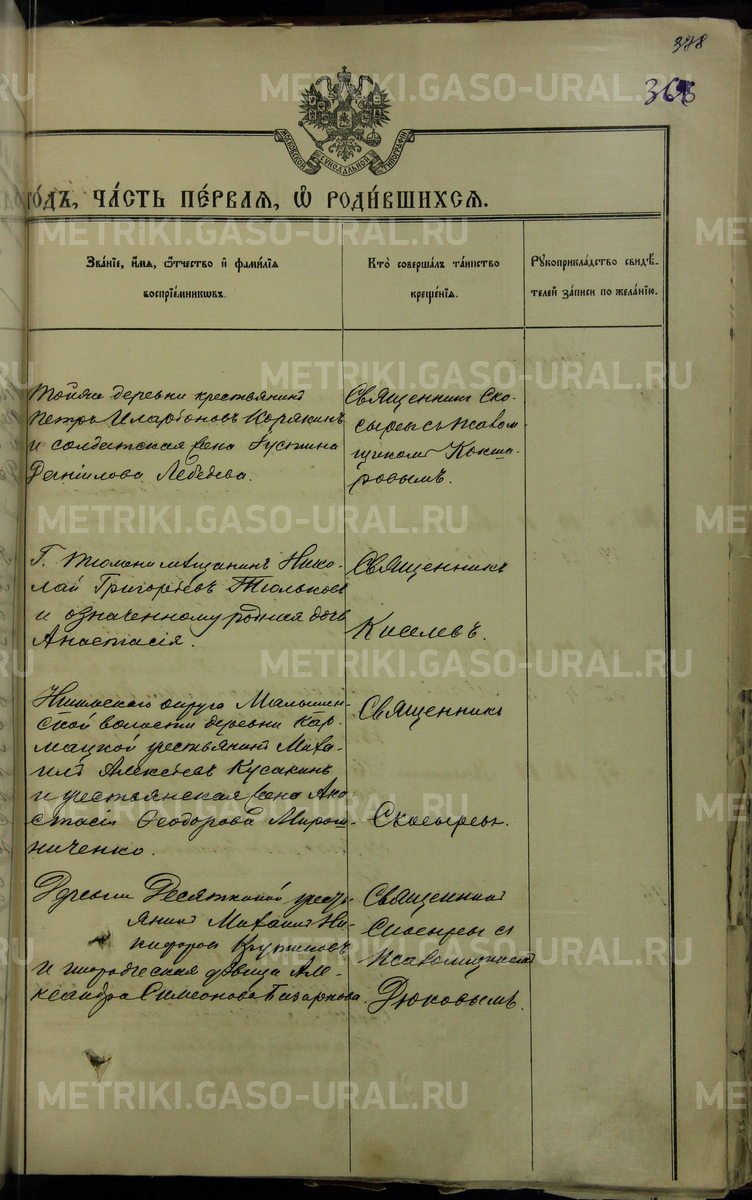 328
365
МОСКОВСКОЙ СѴНОДАЛЬНОЙ ТИПОГРАФІИ
го́дъ, ча́сть пе́рваѧ, ѡ҆ роди́вшихсѧ.
Зва́нїе, и҆́мѧ, ѻ҆́тчество и҆ фами́лїѧ
воспрїе́мникѡвъ.
Кто̀ соверша́лъ та́инство
креще́нїѧ.
Рꙋкоприкла́дство свидѣ́-
телей за́писи по жела́нїю.
Тойже деревни крестьянинъ
Петръ Иларіоновъ Корякинъ
и солдатская жена Іустина
Даніилова Лебедева.
Священникъ Ско-
сыревъ съ псалом-
щикомъ Кокша-
ровымъ.
Г. Тюмени мѣщанинъ Нико-
лай Григорьевъ Тюльковъ
и означенному родная дочь
Анастасія.
Священникъ
Киселевъ.
Ишимскаго округа Малышен-
ской волости деревни Кар-
мацкой крестьянинъ Миха-
илъ Алексѣевъ Кусакинъ
и крестьянская жена Ана-
стасія Ѳеодорова Мирош-
ниченко.
Священникъ
Скосыревъ.
Деревни Десятковой кресть-
янинъ Михаилъ Ни-
кифоровъ
и дѣвица Але-
ксандра Симеонова
Священникъ
Скосыревъ съ
псаломщикомъ
Дюковымъ.
METRIKI.GASO-URAL.RU